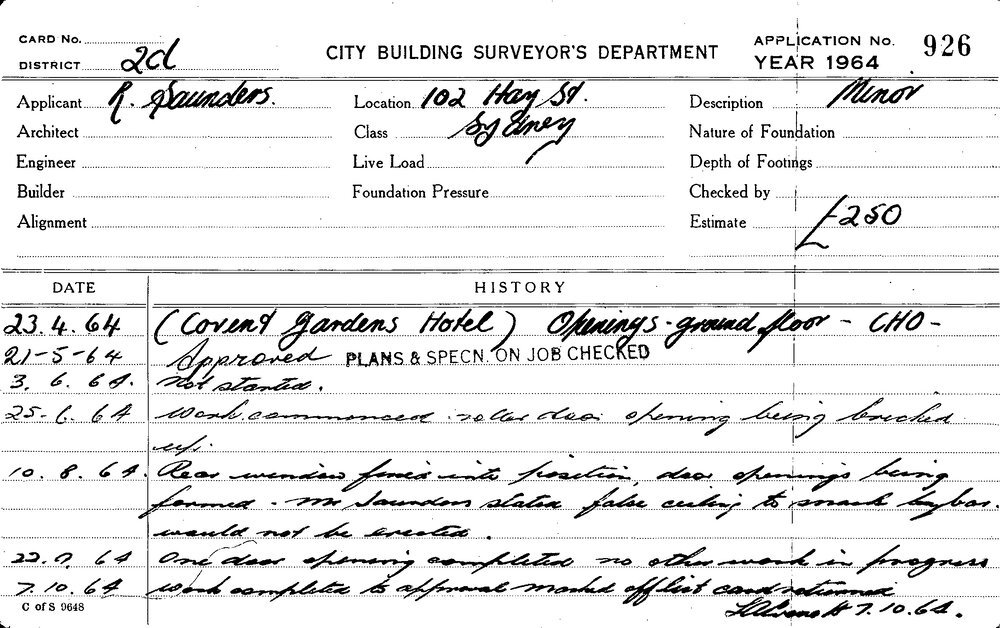 CARD No.
DISTRICT 2d
CITY BUILDING SURVEYOR'S DEPARTMENT
APPLICATION No. 926
YEAR 1964
Applicant R. Saunders. Location 102 Hay St. Description Minor
Architect Class Sydney Nature of Foundation
Engineer Live Load Depth of Footings
Builder Foundation Pressure Checked by
Alignment Estimate £250
DATE HISTORY
23.4.64 (Covent Gardens Hotel) Openings - ground floor - CHO -
21-5-64 Approved PLANS & SPECN. ON JOB CHECKED
3. 6. 64. Not started.
25-6.64 Work commenced roller door opening being bricked
up.
10. 8. 64. Rear window fixed into position, door openings being
formed - Mr Saunders stated false ceiling to snack bar
would not be erected.
22.9.64 One door opening completed no other work in progress
7.10.64 Work completed to approval marked off list card returned
7.10.64.
C of S 9648